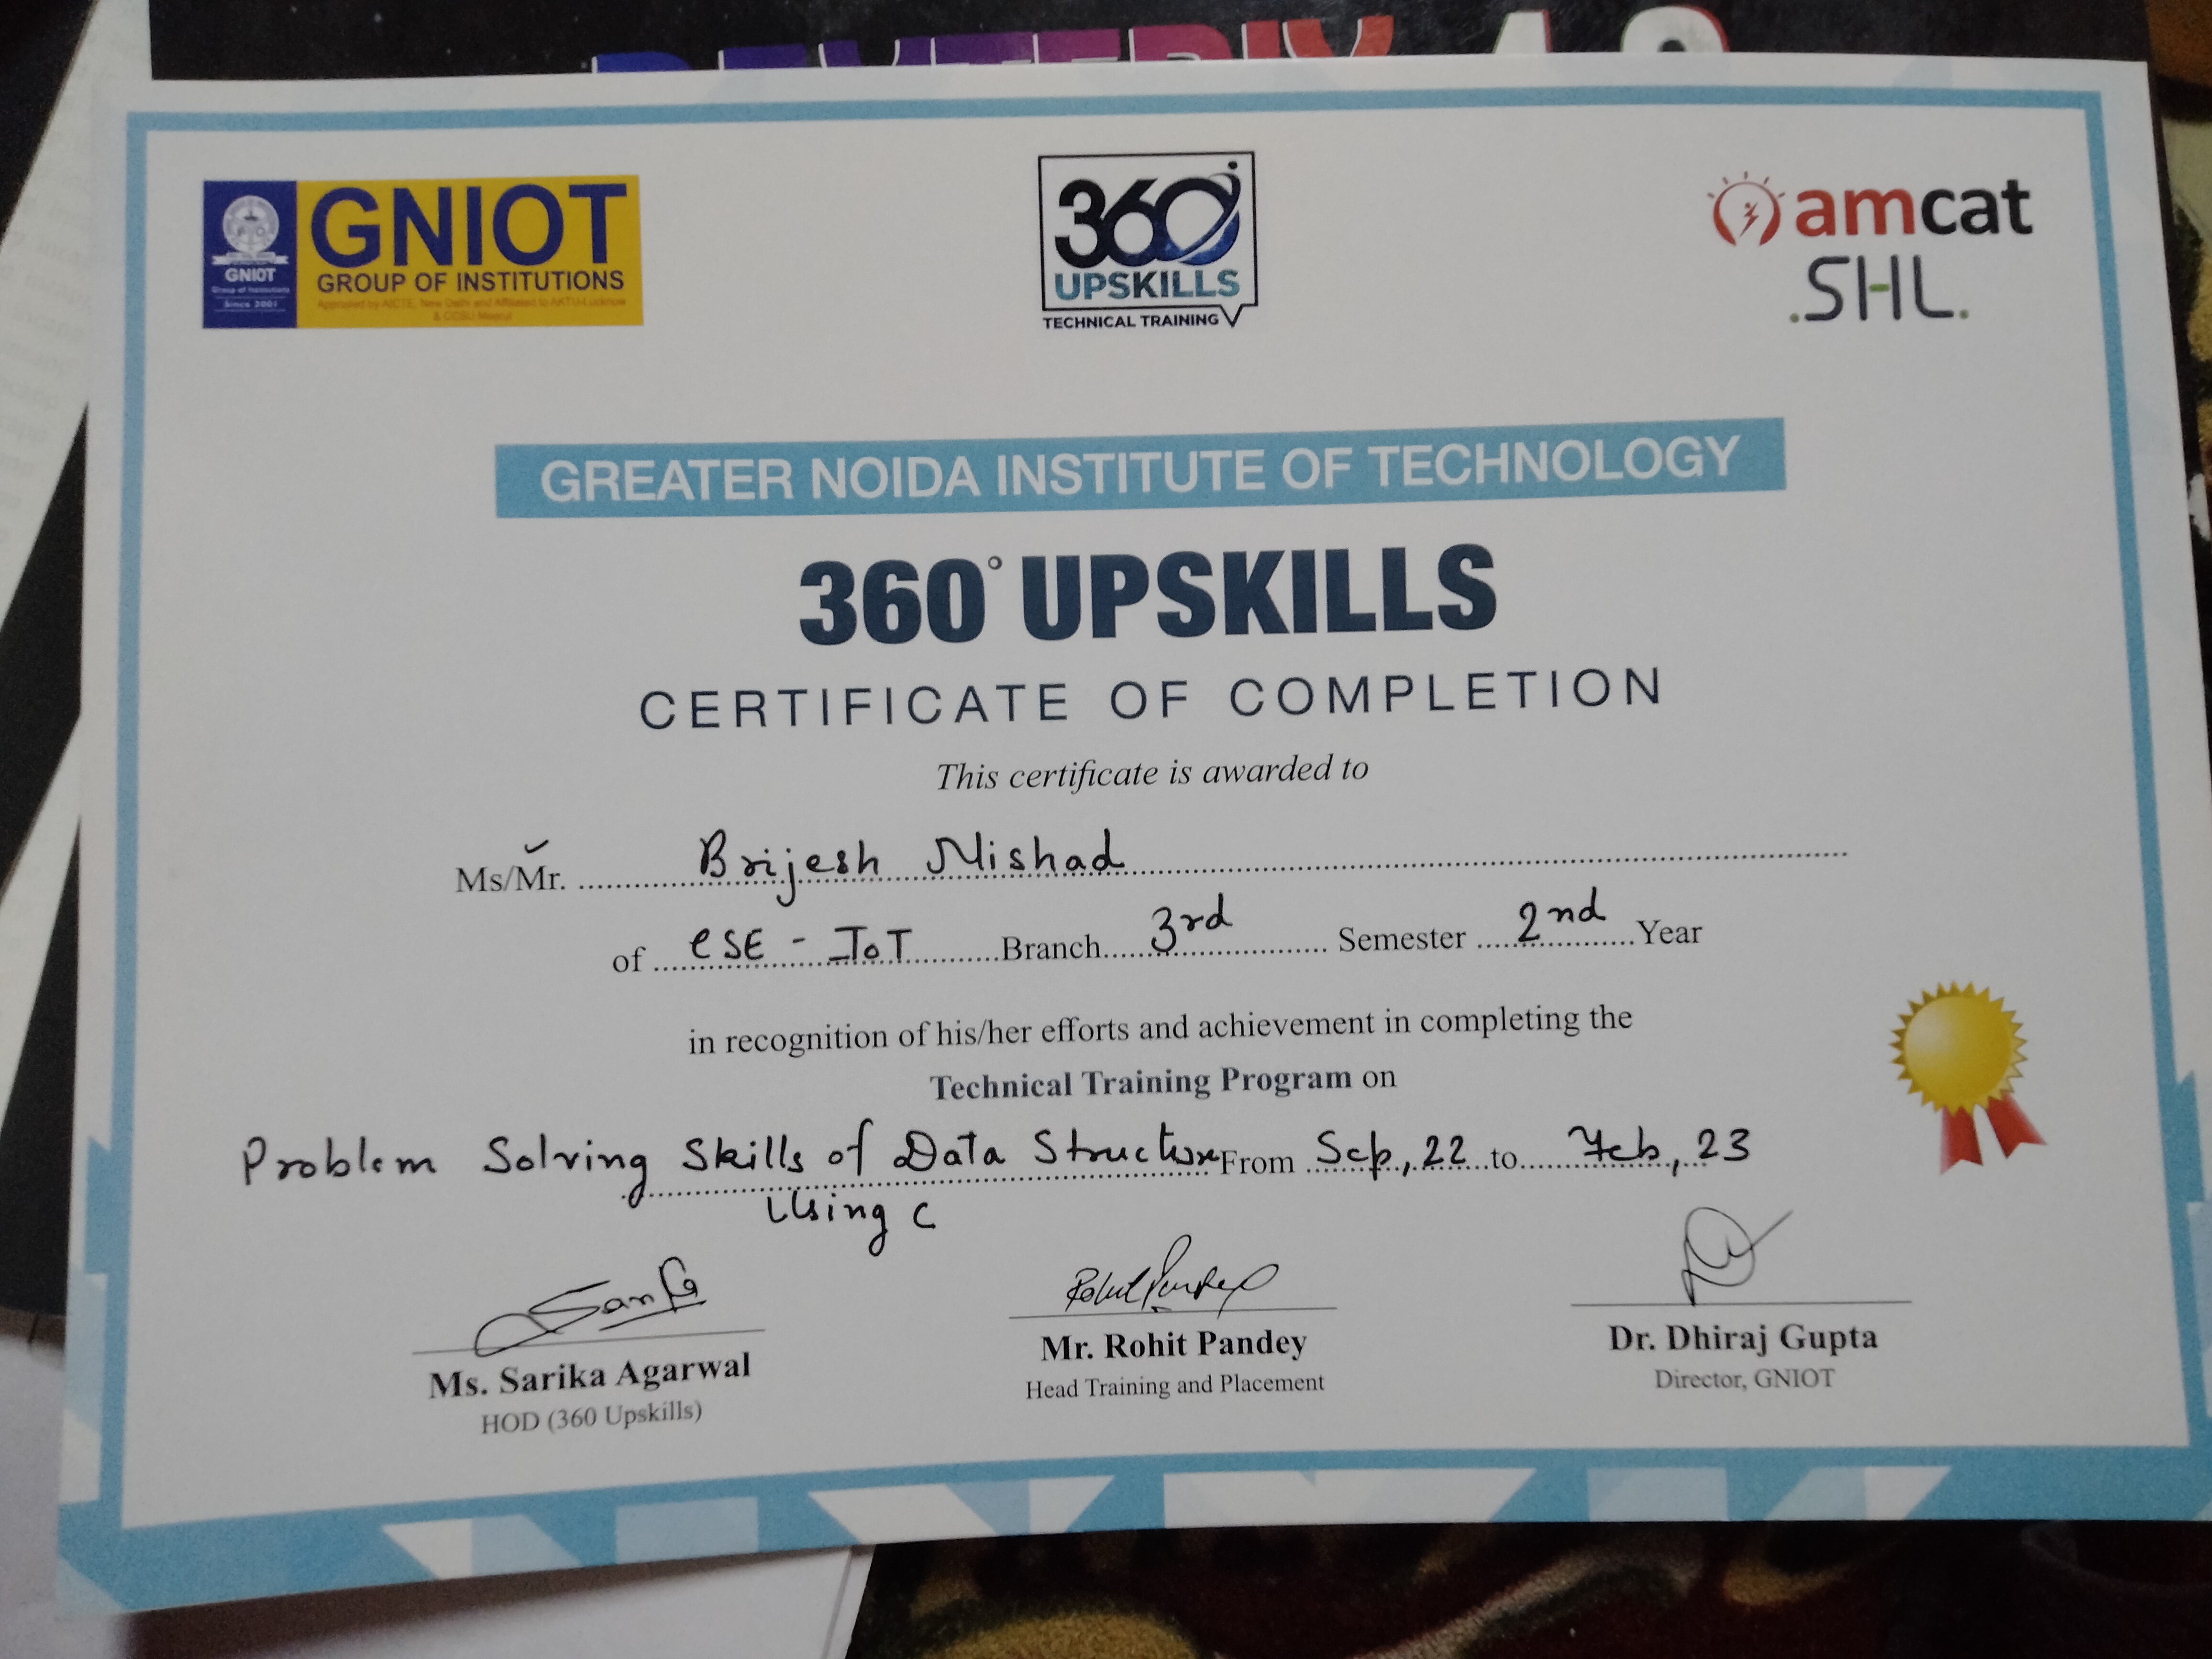 GNIOT
GROUP OF INSTITUTIONS
Approved by AICTE, New Delhi and Affiliated to AKTU-Lucknow
& CCSU Meerut
GNIOT
Group of Institutions
Since 2001
360°
UPSKILLS
TECHNICAL TRAINING
amcat
SHL
GREATER NOIDA INSTITUTE OF TECHNOLOGY
360° UPSKILLS
CERTIFICATE OF COMPLETION
This certificate is awarded to
Ms/Mr. Brijesh Nishad
of CSE - IoT Branch 3rd Semester 2nd Year
in recognition of his/her efforts and achievement in completing the
Technical Training Program on
Problem Solving Skills of Data Structure From Sep, 22 to Feb, 23
Using C
Rohit Pandey
Ms. Sarika Agarwal
HOD (360 Upskills)
Mr. Rohit Pandey
Head Training and Placement
Dr. Dhiraj Gupta
Director, GNIOT